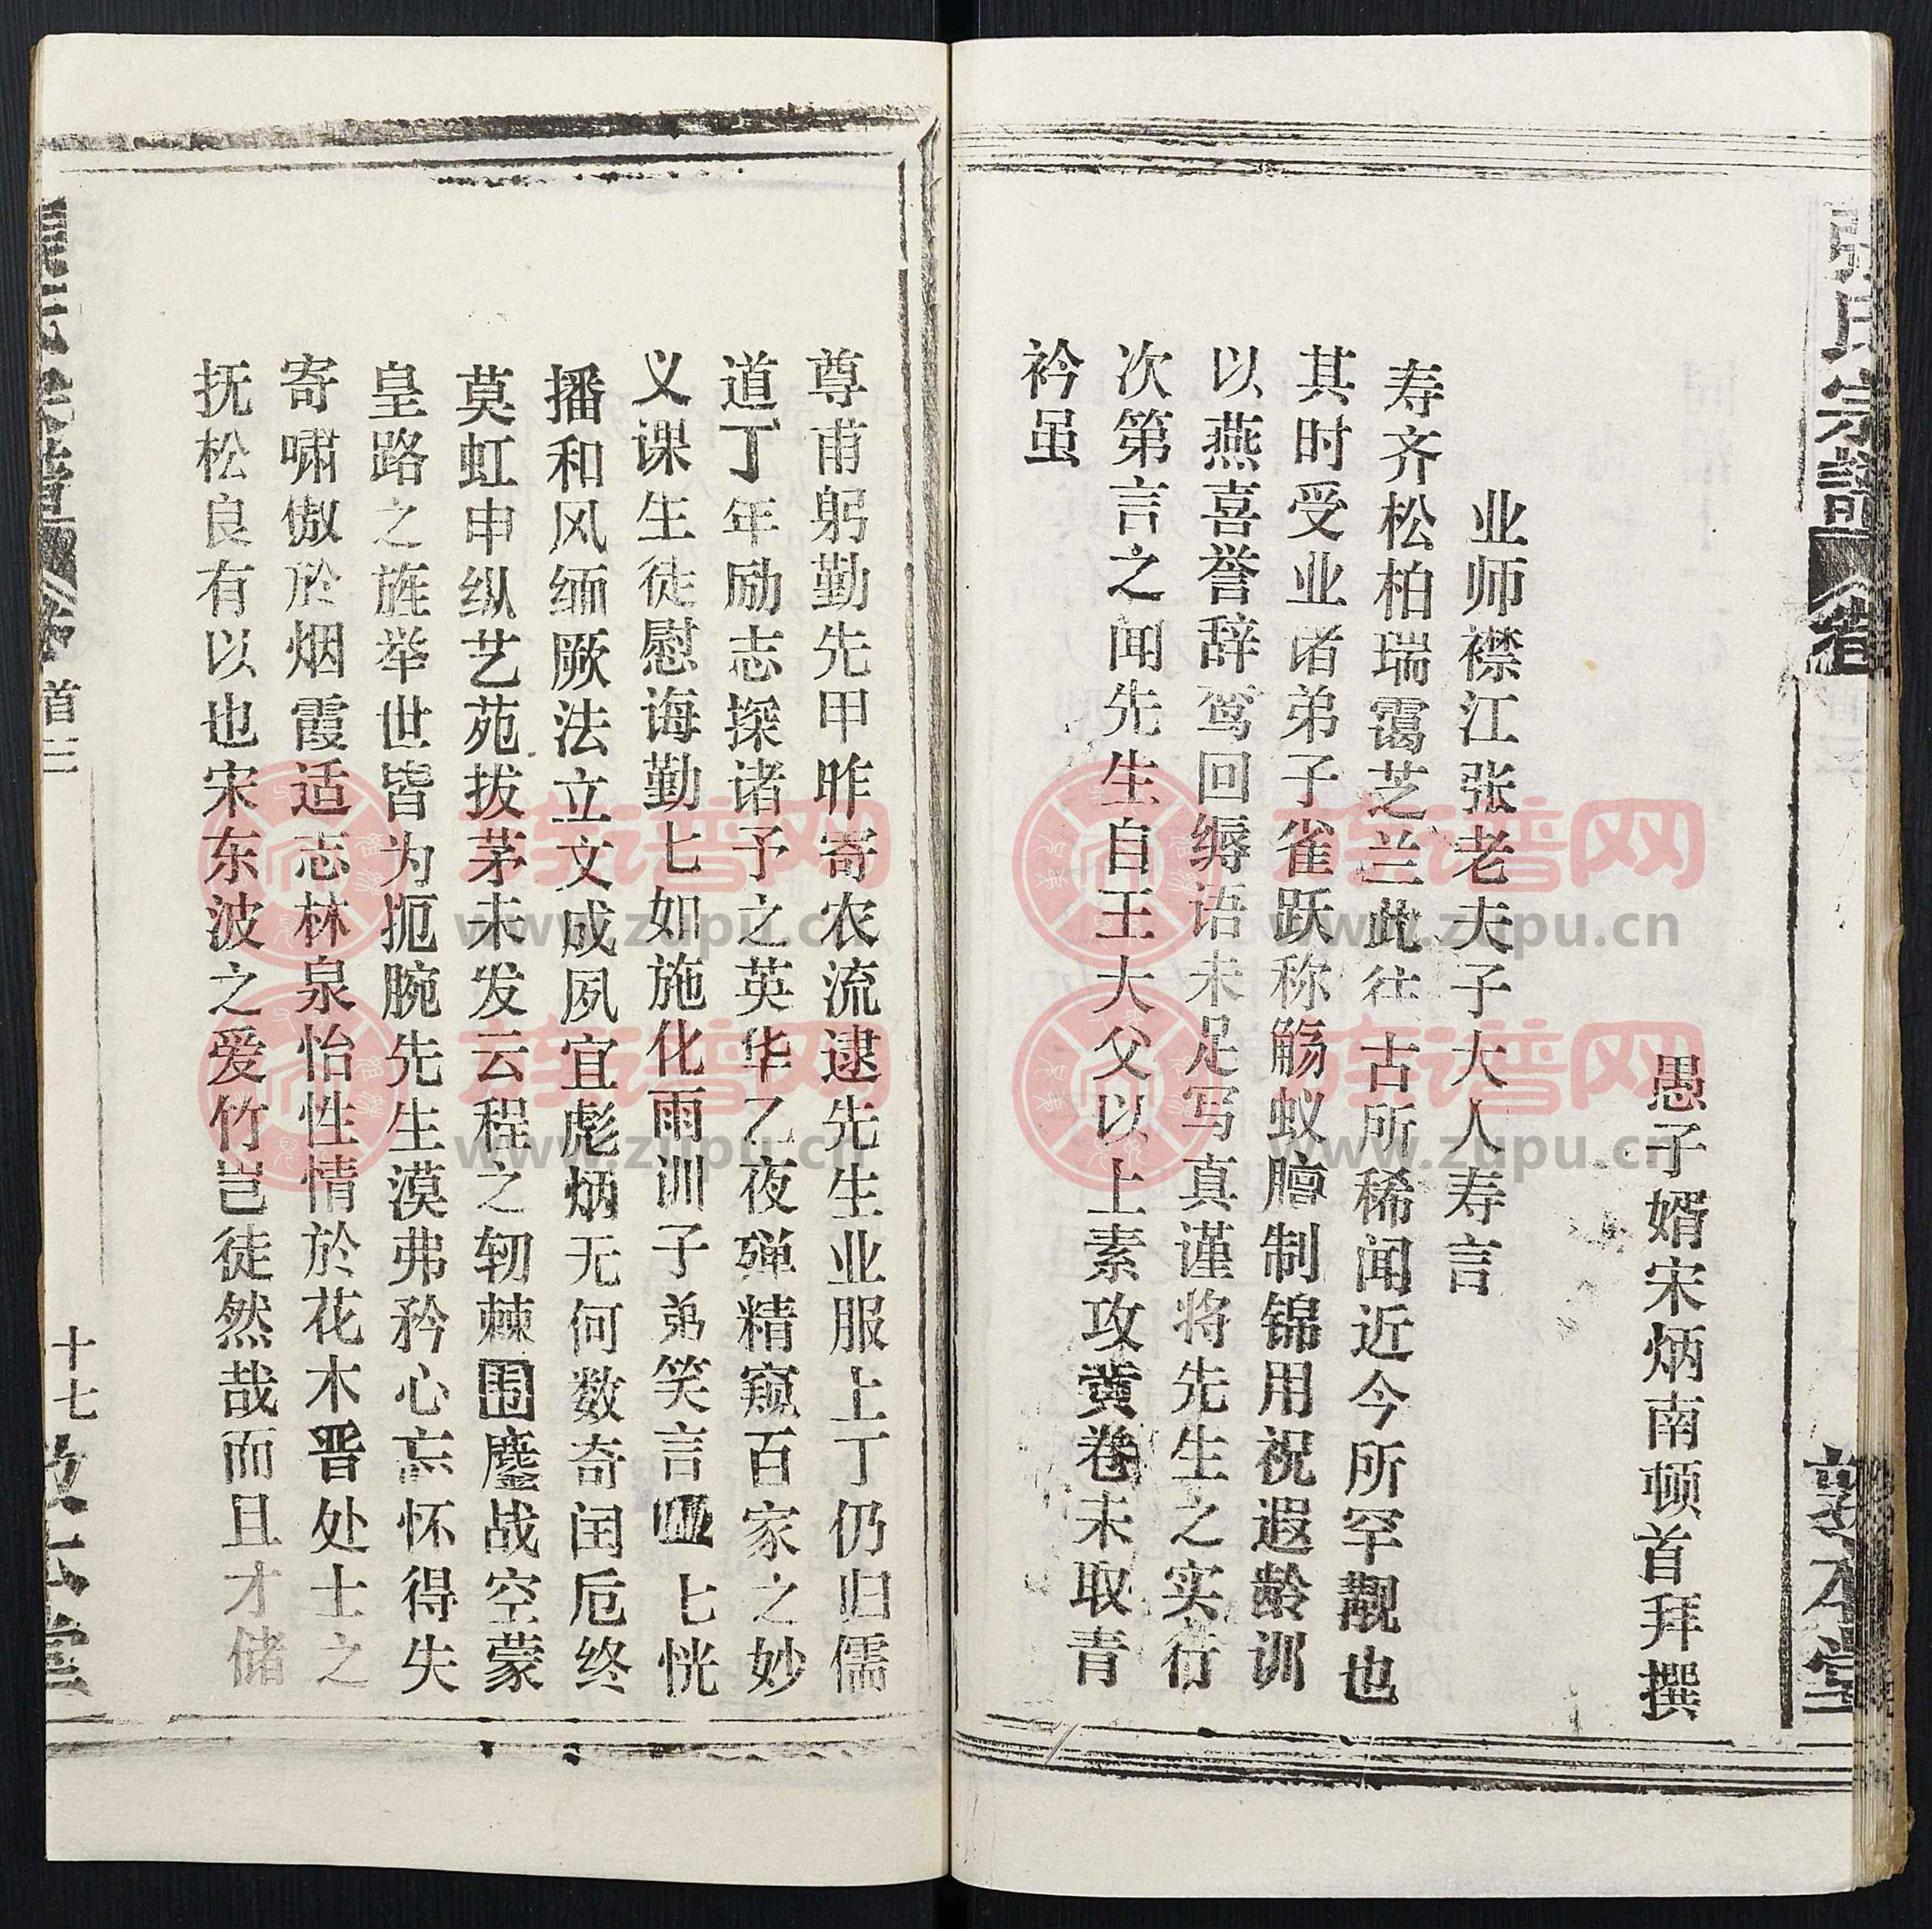 张氏宗譜 卷
敦本堂
愚子婿宋炳南顿首拜撰
业师襟江张老夫子大人寿言
寿齐松柏瑞霭芝兰此往古所稀闻近今所罕觏也
其时受业诸弟子雀跃称觞蚁膻制锦用祝遐龄训
以燕喜誉辞鸾回缛语未足写真谨将先生之实行
次第言之闻先生自王大父以上素攻黄卷未取青
衿虽
尊甫躬勤先甲昨寄农流逮先生业服上丁仍归儒
道丁年励志探诸予之英华乙夜殚精窥百家之妙
义课生徒慰诲勤七如施化雨训子弟笑言哑七恍
播和风缅厥法立文成夙宜彪炳无何数奇闰厄终
莫虹申纵艺苑拔茅未发云程之轫棘围鏖战空蒙
皇路之旌举世皆为扼腕先生漠弗矜心忘怀得失
寄啸傲於烟霞适志林泉怡性情於花木晋处士之
抚松良有以也宋东波之爱竹岂徒然哉而且才储
首三
十七
族谱网
www.zupu.cn
族谱网
www.zupu.cn
族谱网
www.zupu.cn
族谱网
www.zupu.cn